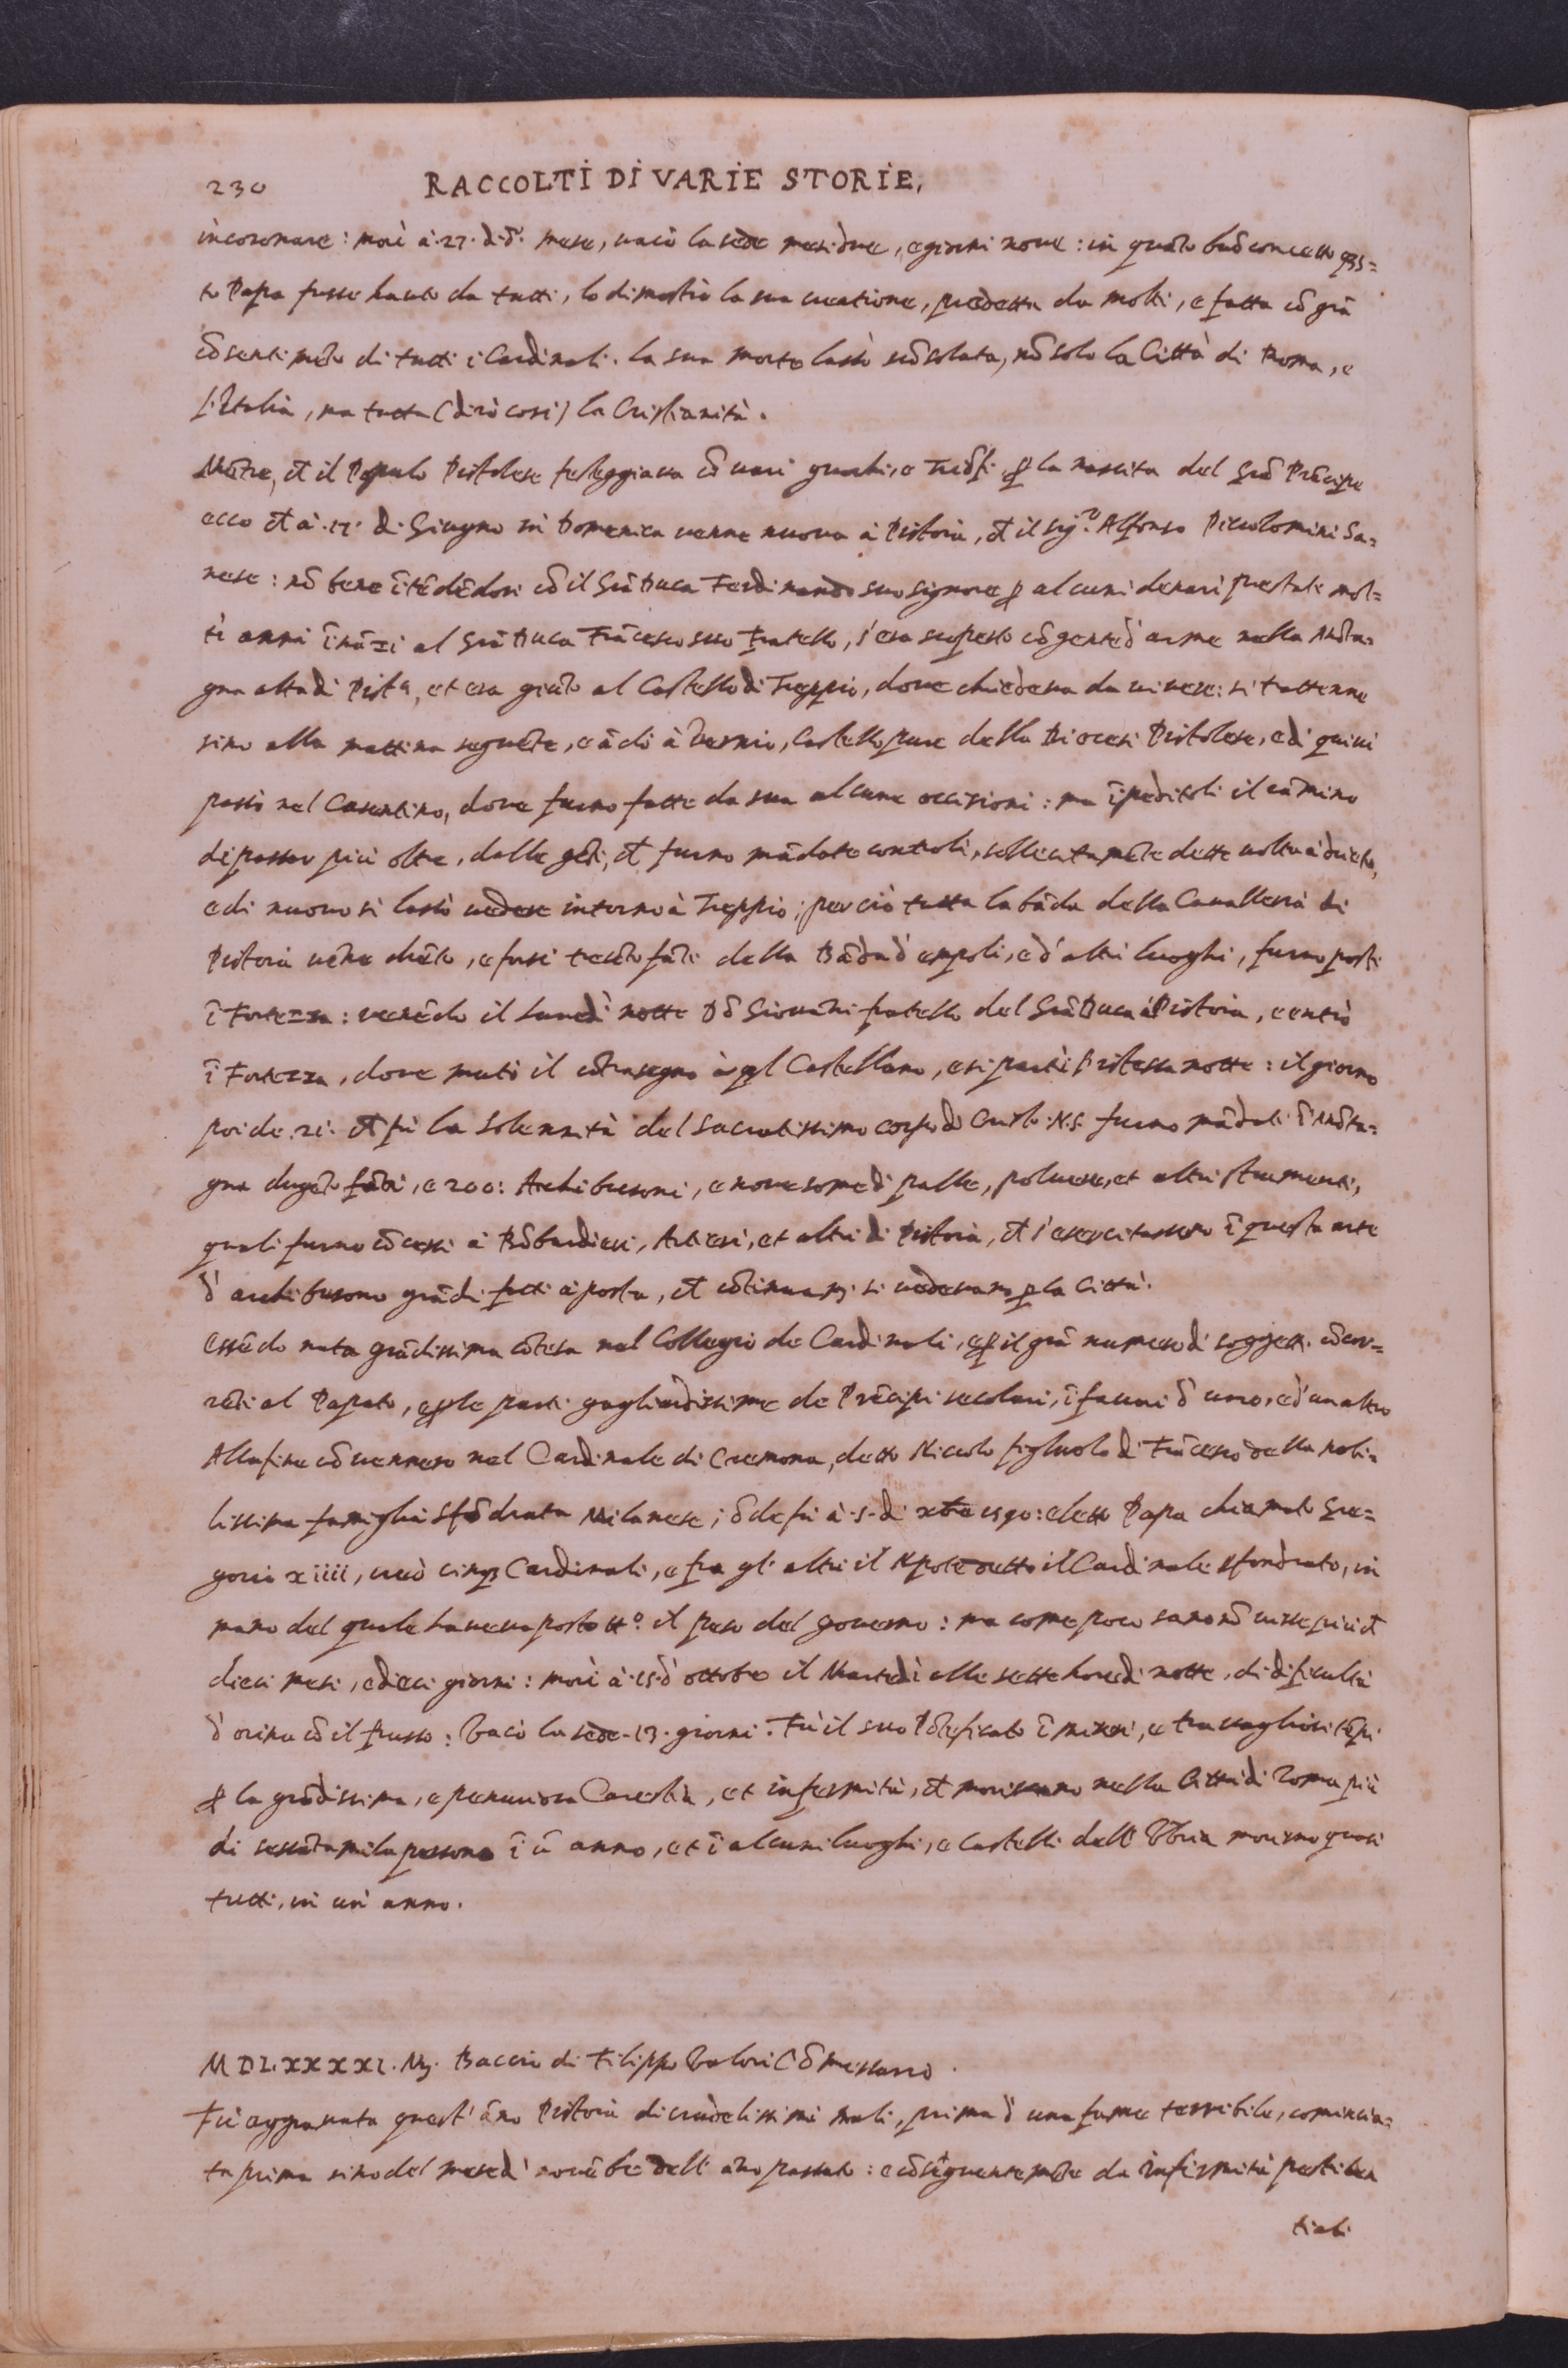 230 RACCOLTI DI VARIE STORIE,
incoronare: morì à .27. d. d.º mese, vacò la sede mesi due, e giorni nove: in quāto buō concetto q̄s=
to Papa fusse hauto da tutti, lo dimostrò la sua creatione, predetta da molti, e fatta cō grā
cōsentimēto di tutti i Cardinali. la sua morte lassò scōsolata, nō solo la Città di Roma, e
l'Italia, ma tutta (dirò così) la Cristianità.
Mētre, ch̄ il Popolo Pistolese festeggiava cō vari giuochi, e Triōfi p̱ la nascita del Grā Prīcipe
ecco ch̄ à .17. di Giugno in Domenica venne nuova à Pistoia, ch̄ il sig.ʳ Alfonso Piccolomini Sa=
nese: nō bene ītēdēdosi cō il Grā Duca Ferdinando suo signore p̱ alcuni denari prestati mol=
ti anni īnāzi al Grā Duca Frācesco suo Fratello, s'era scoperto cō gente d'arme nella Mōta=
gna alta di Pist.ª, et era giūto al Castello di Treppio, dove chiedeva da vivere: si trattenne
sino alla mattina seguēte, e ādò à Vernio, Castello pure della Diocesi Pistolese, e di quivi
passò nel Casentino, dove furno fatte da sua alcune occisioni: ma īpeditoli il cāmino
di passar più oltre, dalle gēti, ch̄ furno mādate controli, sollecitamēte dette volta à drieto,
e di nuovo si lassò vedere intorno à Treppio; perciò tutta la bāda della Cavalleria di
Pistoia vēne drēto, e forsi trecēto fāti della Bāda d'empoli, e d'altri luoghi, furno posti
ī Fortezza: venēdo il Lunedì notte Dō Giovāni fratello del Grā Duca à Pistoia, e entrò
ī Fortezza, dove mutò il cōtrasegno à q̄l Castellano, e si partì l'istessa notte: il giorno
poi de .21. ch̄ fù la solennità del Sacratissimo corpo di Cristo .N.S. furno mādati ī Mōta=
gna dugēto fāti, e 200: Archibusoni, e nove some di palle, polvere, et altri strumenti,
quali furno cōcessi à Bōbardieri, Artieri, et altri di Pistoia, ch̄ s'esercitassero ī questa arte
d'archibusono grādi fatti à posta, ch̄ cōtinuam̄. si vedevano p̱ la Città.
Essēdo nata grādissima cōtesa nel Collegio de Cardinali, e p̱ il grā numero di soggetti cōcor=
rēti al Papato, e p̱ le parti gagliardissime de Prīcipi secolari, ī favori d'uno, e d'un altro
Alla fine cōvennero nel Cardinale di Cremona, detto Niccolo figliuolo di Frācesco della nobi=
lissima famiglia Sfōdrata Milanese; ōde fù à .5. di xbre 1590: eletto Papa chiamato Gre=
gorio xiiii, creò cinq̄ Cardinali, e fra gl'altri il Npote detto il Cardinale sfondrato, in
mano del quale haveva posto tt.º il peso del governo: ma come poco sano nō visse più ch̄
dieci mesi, e dieci giorni: morì à .15. d'ottobre il Martedì alle sette hore di notte, di dificultà
d'orina cō il frusso: Vacò la sede .13. giorni. Fù il suo Pōteficato ī miseri, e travagliosi tēpi
p̱ la grādissima, e penuriosa Carestia, et infermità, ch̄ morirno nella Città di Roma più
di sessātamila persone ī ū anno, et ī alcuni luoghi, e Castelli dell'Vbria morirno quasi
tutti, in un' anno.
MDL.XXXXI. M. Baccio di Filippo Valori Cōmessario.
Fù aggravata quest'āno Pistoia di crudelissimi mali, prima d'una fame terribile, comincia=
ta prima sino del mese di novēbre dell'āno passato: e cōsiguentemēte da infirmità pestilen
tiali